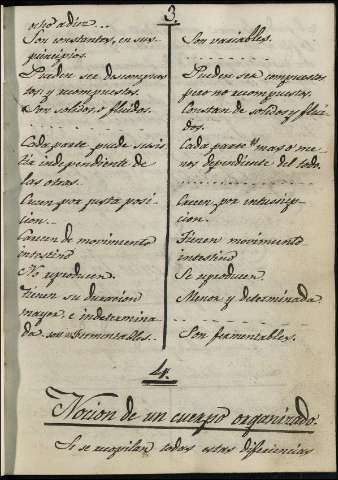 3.
ocho a diez...
Son constantes, en sus
principios.
Pueden ser descompues
tos y recompuestos.
Son solidos o fluidos.
Cada parte puede subsis
tir independiente de
las otras.
Crecen por justa posi
cion...
Carecen de movimiento
intestino
No reproducen.
Tienen su duracion
mayor é indetermina
da. fermentables.
Son variables.
Pueden ser compuestos
pero no recompuestos.
Constan de solidos y flui
dos.
Cada parte mas o me
nos dependiente del todo.
Crecen por intussuscep
cion.
Tienen movimiento
intestino
Se reproducen.
Menor y determinada
Son fermentables.
4.
Nocion de un cuerpo organizado.
Si se recopilan todas estas diferencias